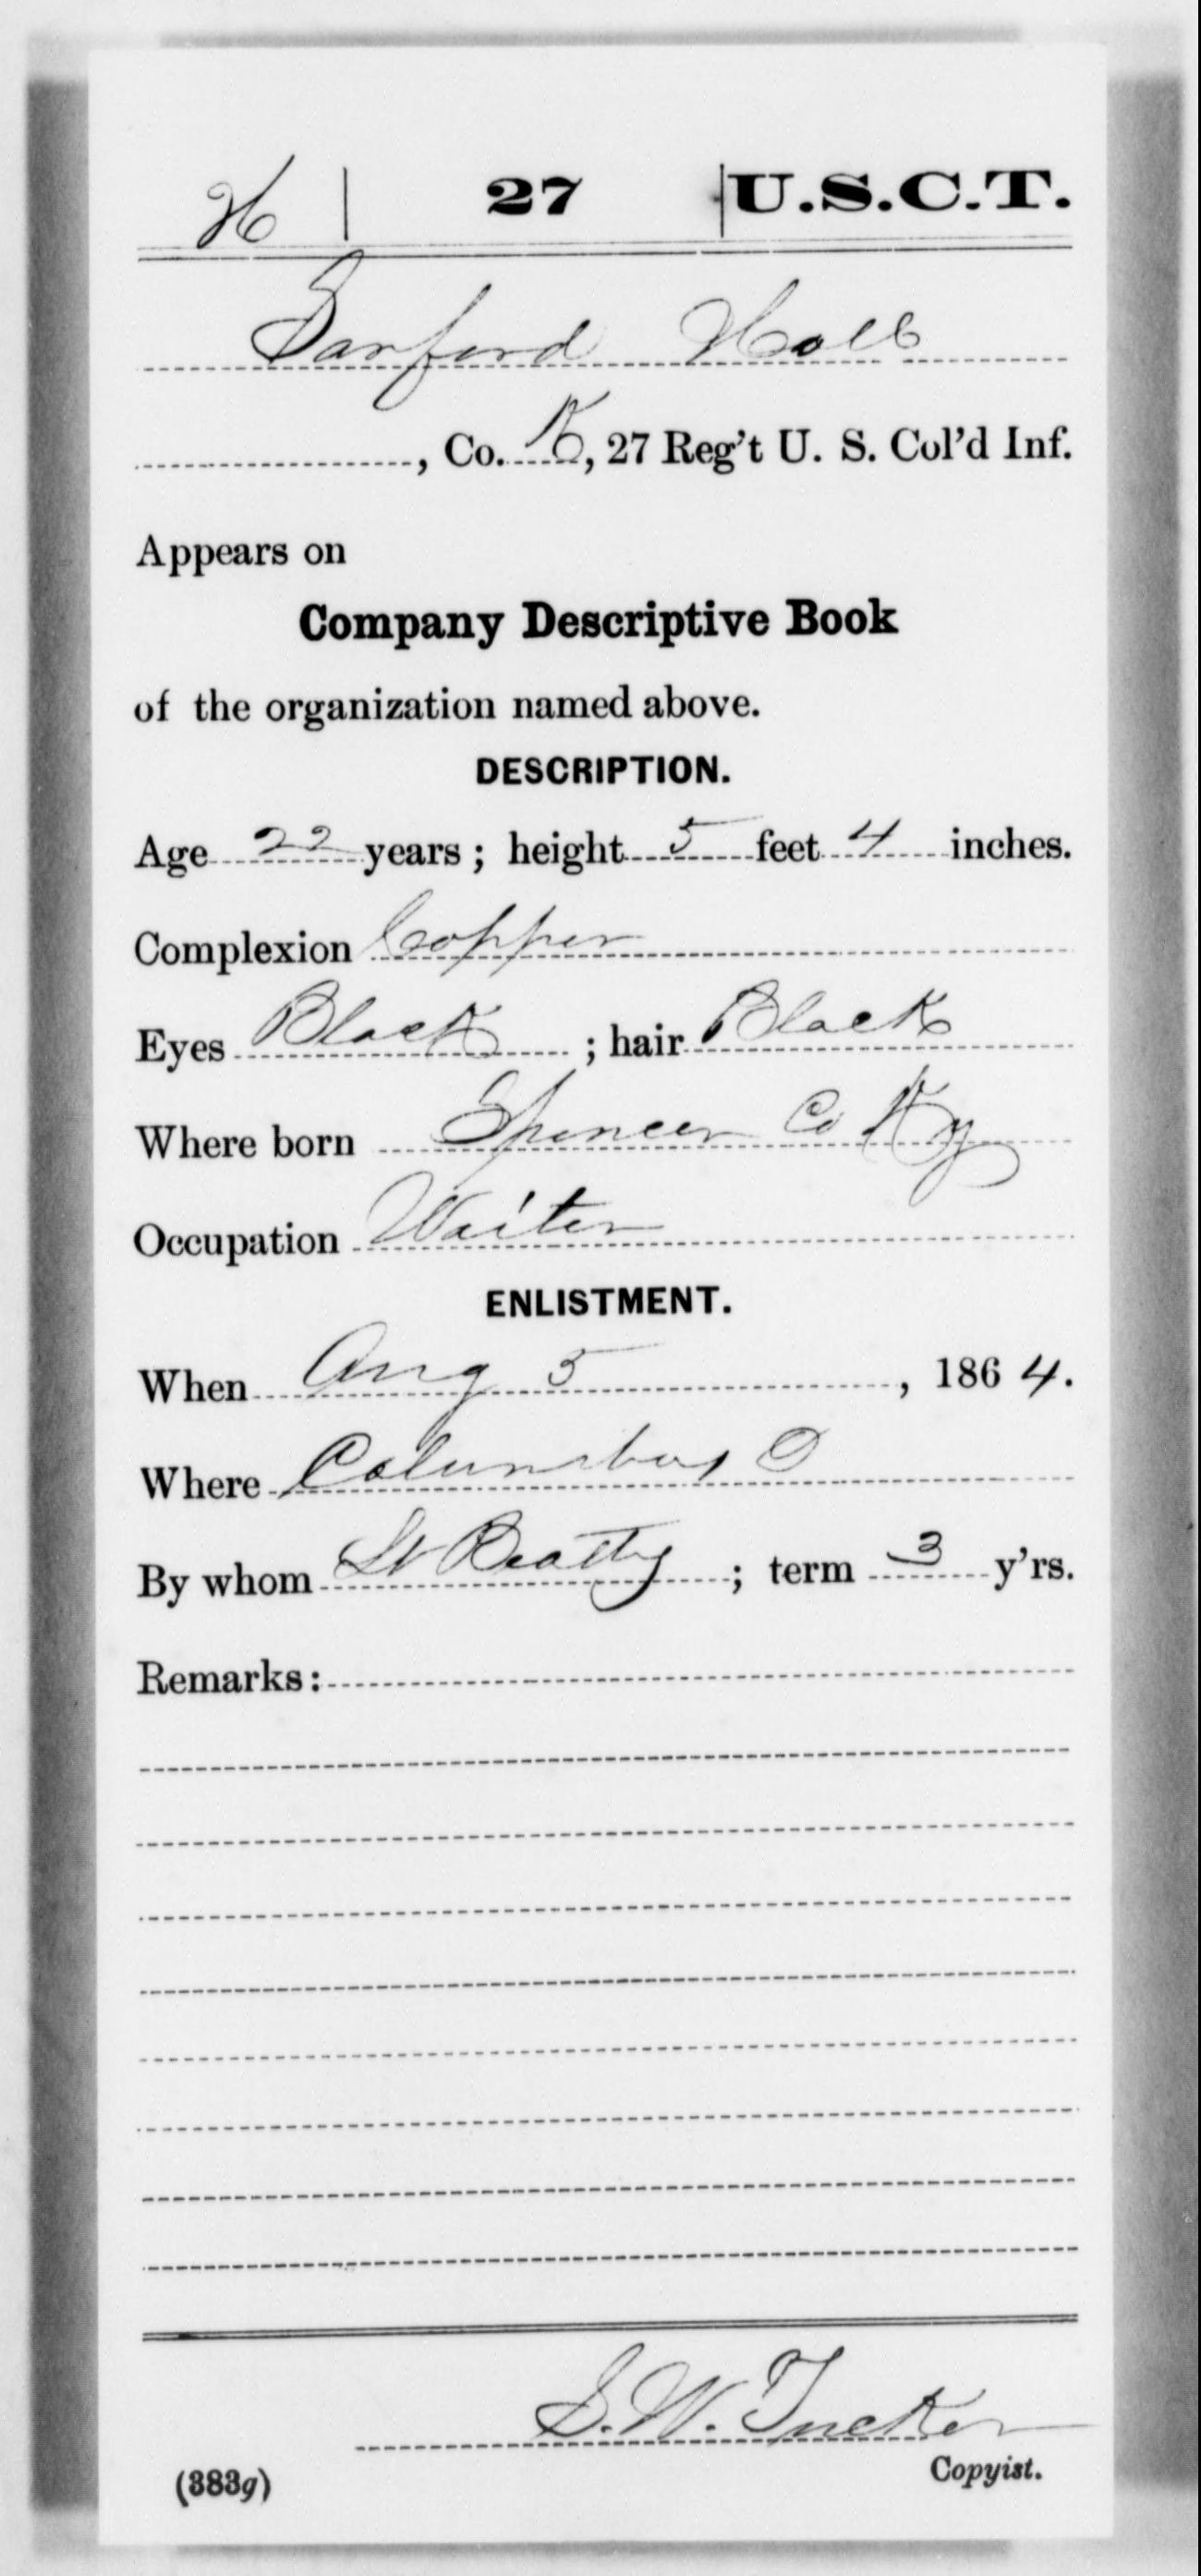 H | 27 | U.S.C.T.
Sanford Hall
, Co. K, 27 Reg't U. S. Col'd Inf.
Appears on
Company Descriptive Book
of the organization named above.
DESCRIPTION.
Age 22 years; height 5 feet 4 inches.
Complexion Copper
Eyes Black ; hair Black
Where born Spencer Co Ky
Occupation Waiter
ENLISTMENT.
When Aug 5, 1864.
Where Columbus O
By whom Lt Beatty; term 3 y'rs.
Remarks:
S. W. Tucker
Copyist.
(383g)